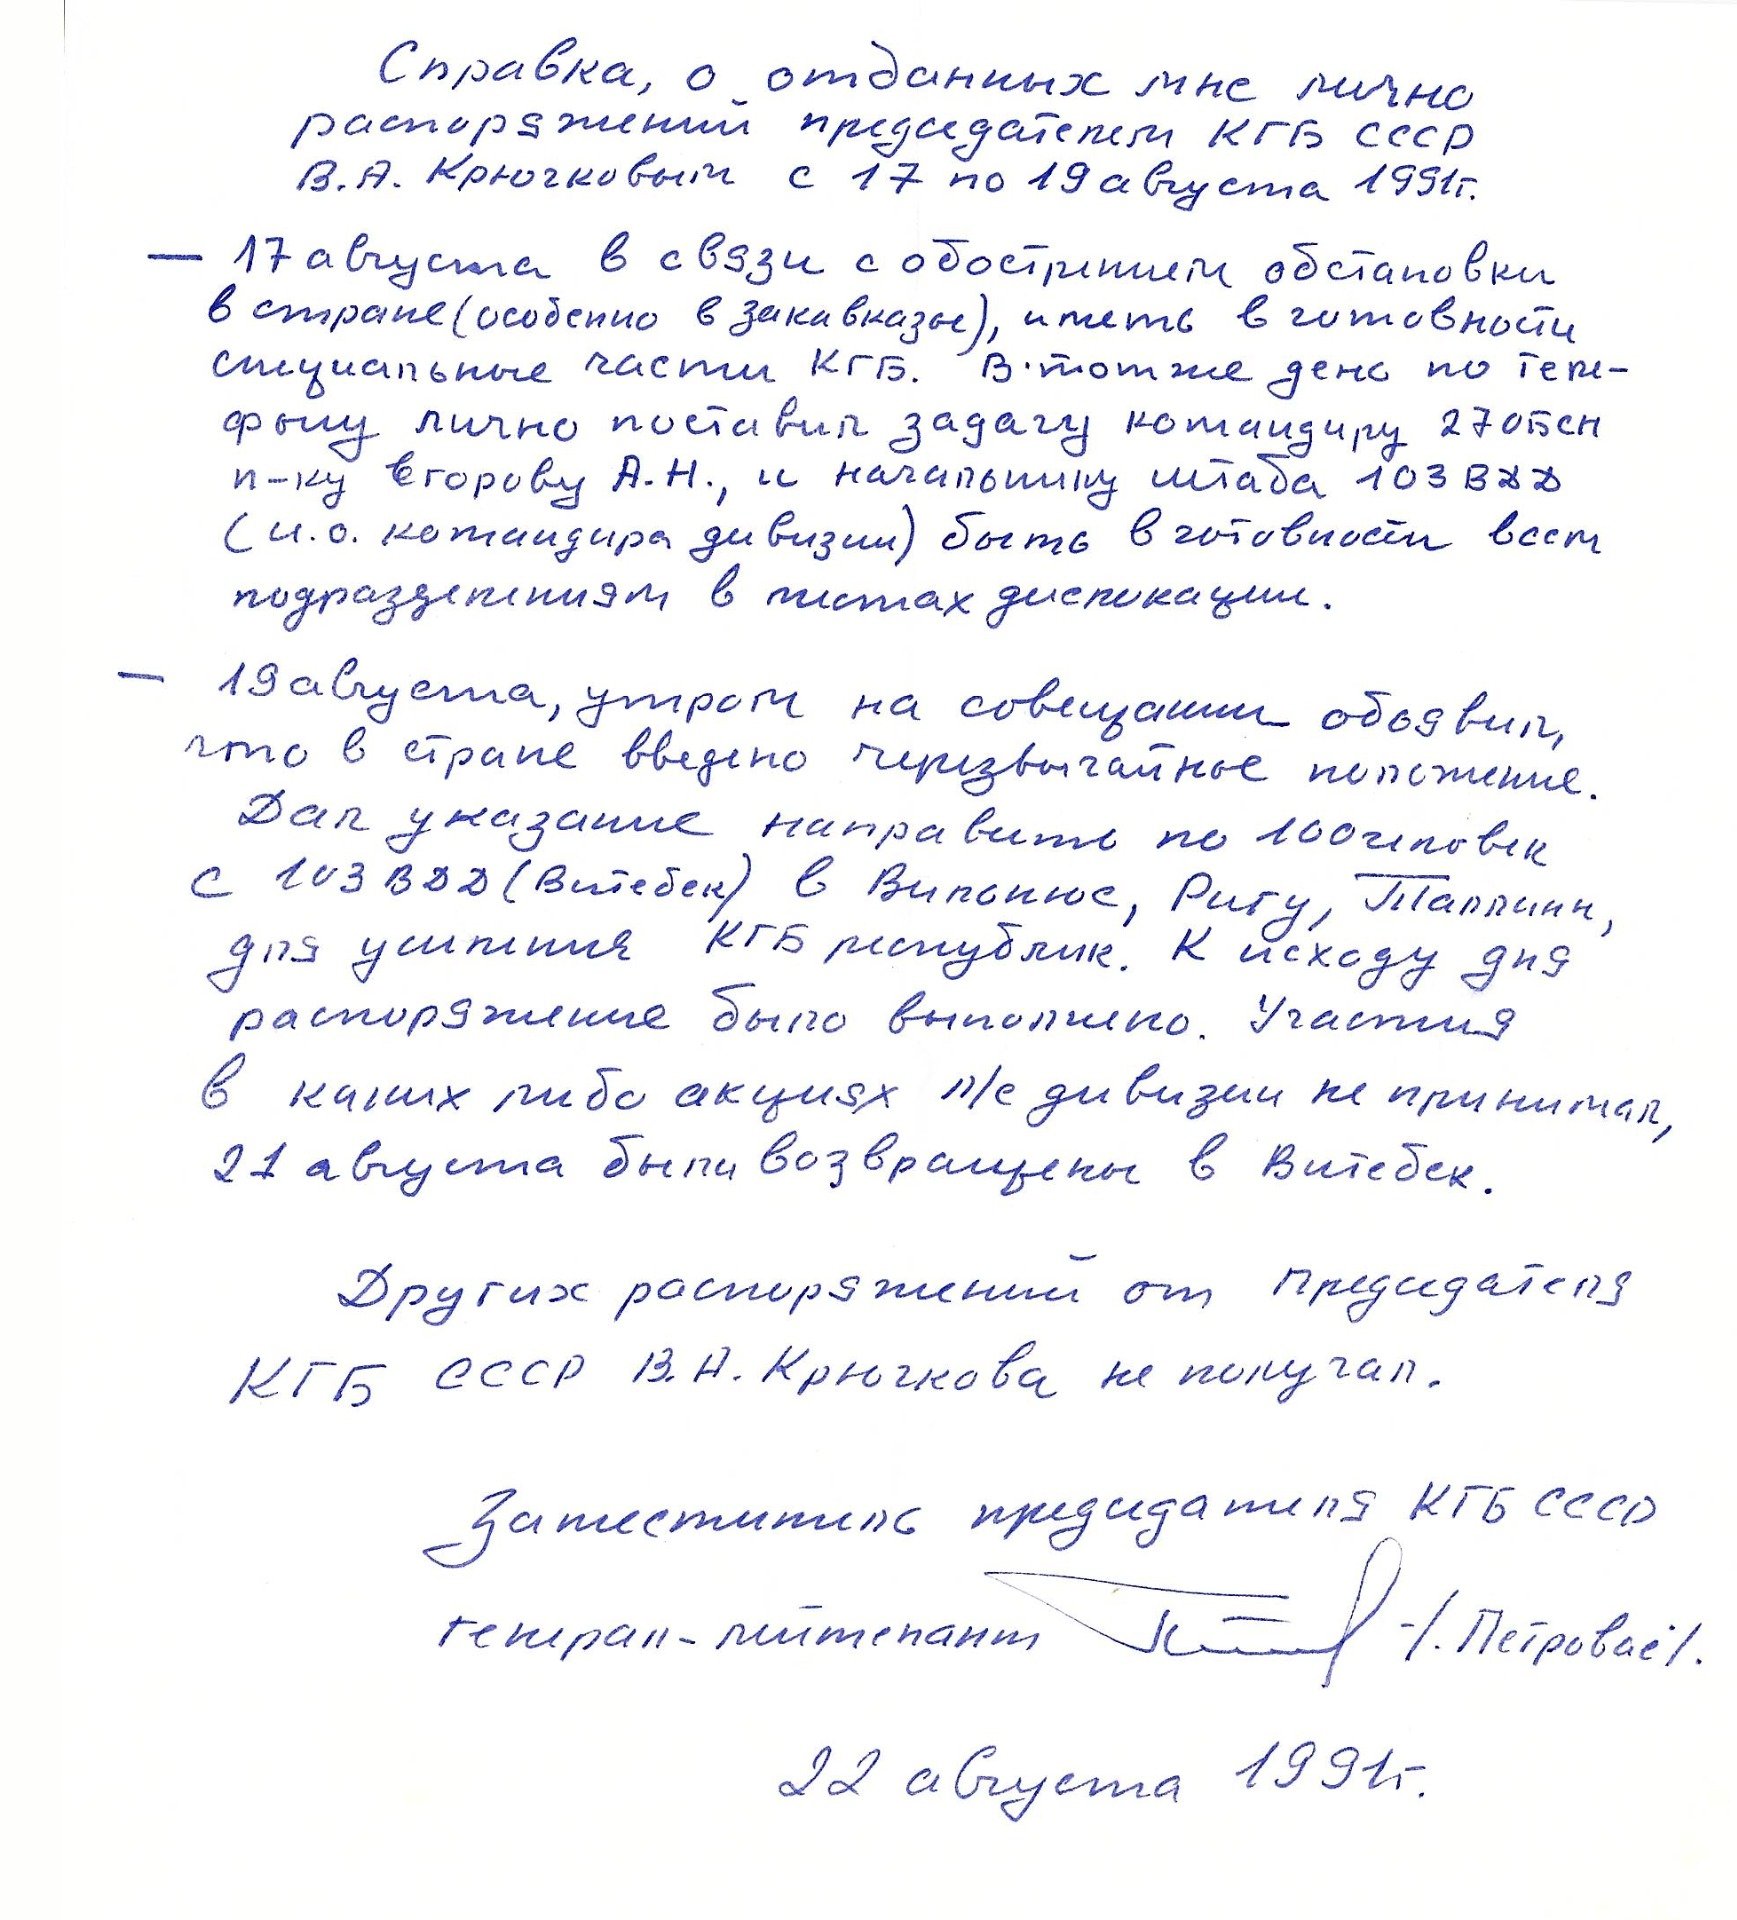 Справка, о отданных мне лично
распоряжений председателем КГБ СССР
В.А. Крючковым с 17 по 19 августа 1991г.
— 17 августа в связи с обострением обстановки
в стране (особенно в закавказье), иметь в готовности
специальные части КГБ. В тот же день по теле-
фону лично поставил задачу командиру 27 отбсн
п-ку Егорову А.Н., и начальнику штаба 103 ВДД
(и.о. командира дивизии) быть в готовности всем
подразделениям в местах дислокации.
— 19 августа, утром на совещании обьявил,
что в стране введено черезвычайное положение.
Дал указание направить по 100 человек
с 103 ВДД (Витебск) в Вильнюс, Ригу, Таллинн,
для усиления КГБ республик. К исходу дня
распоряжение было выполнено. Участия
в каких либо акциях л/с дивизии не принимал,
21 августа были возвращены в Витебск.
Других распоряжений от Председателя
КГБ СССР В.А. Крючкова не получал.
Заместитель председателя КГБ СССР
генерал-лейтенант -/. Петровас /.
22 августа 1991г.